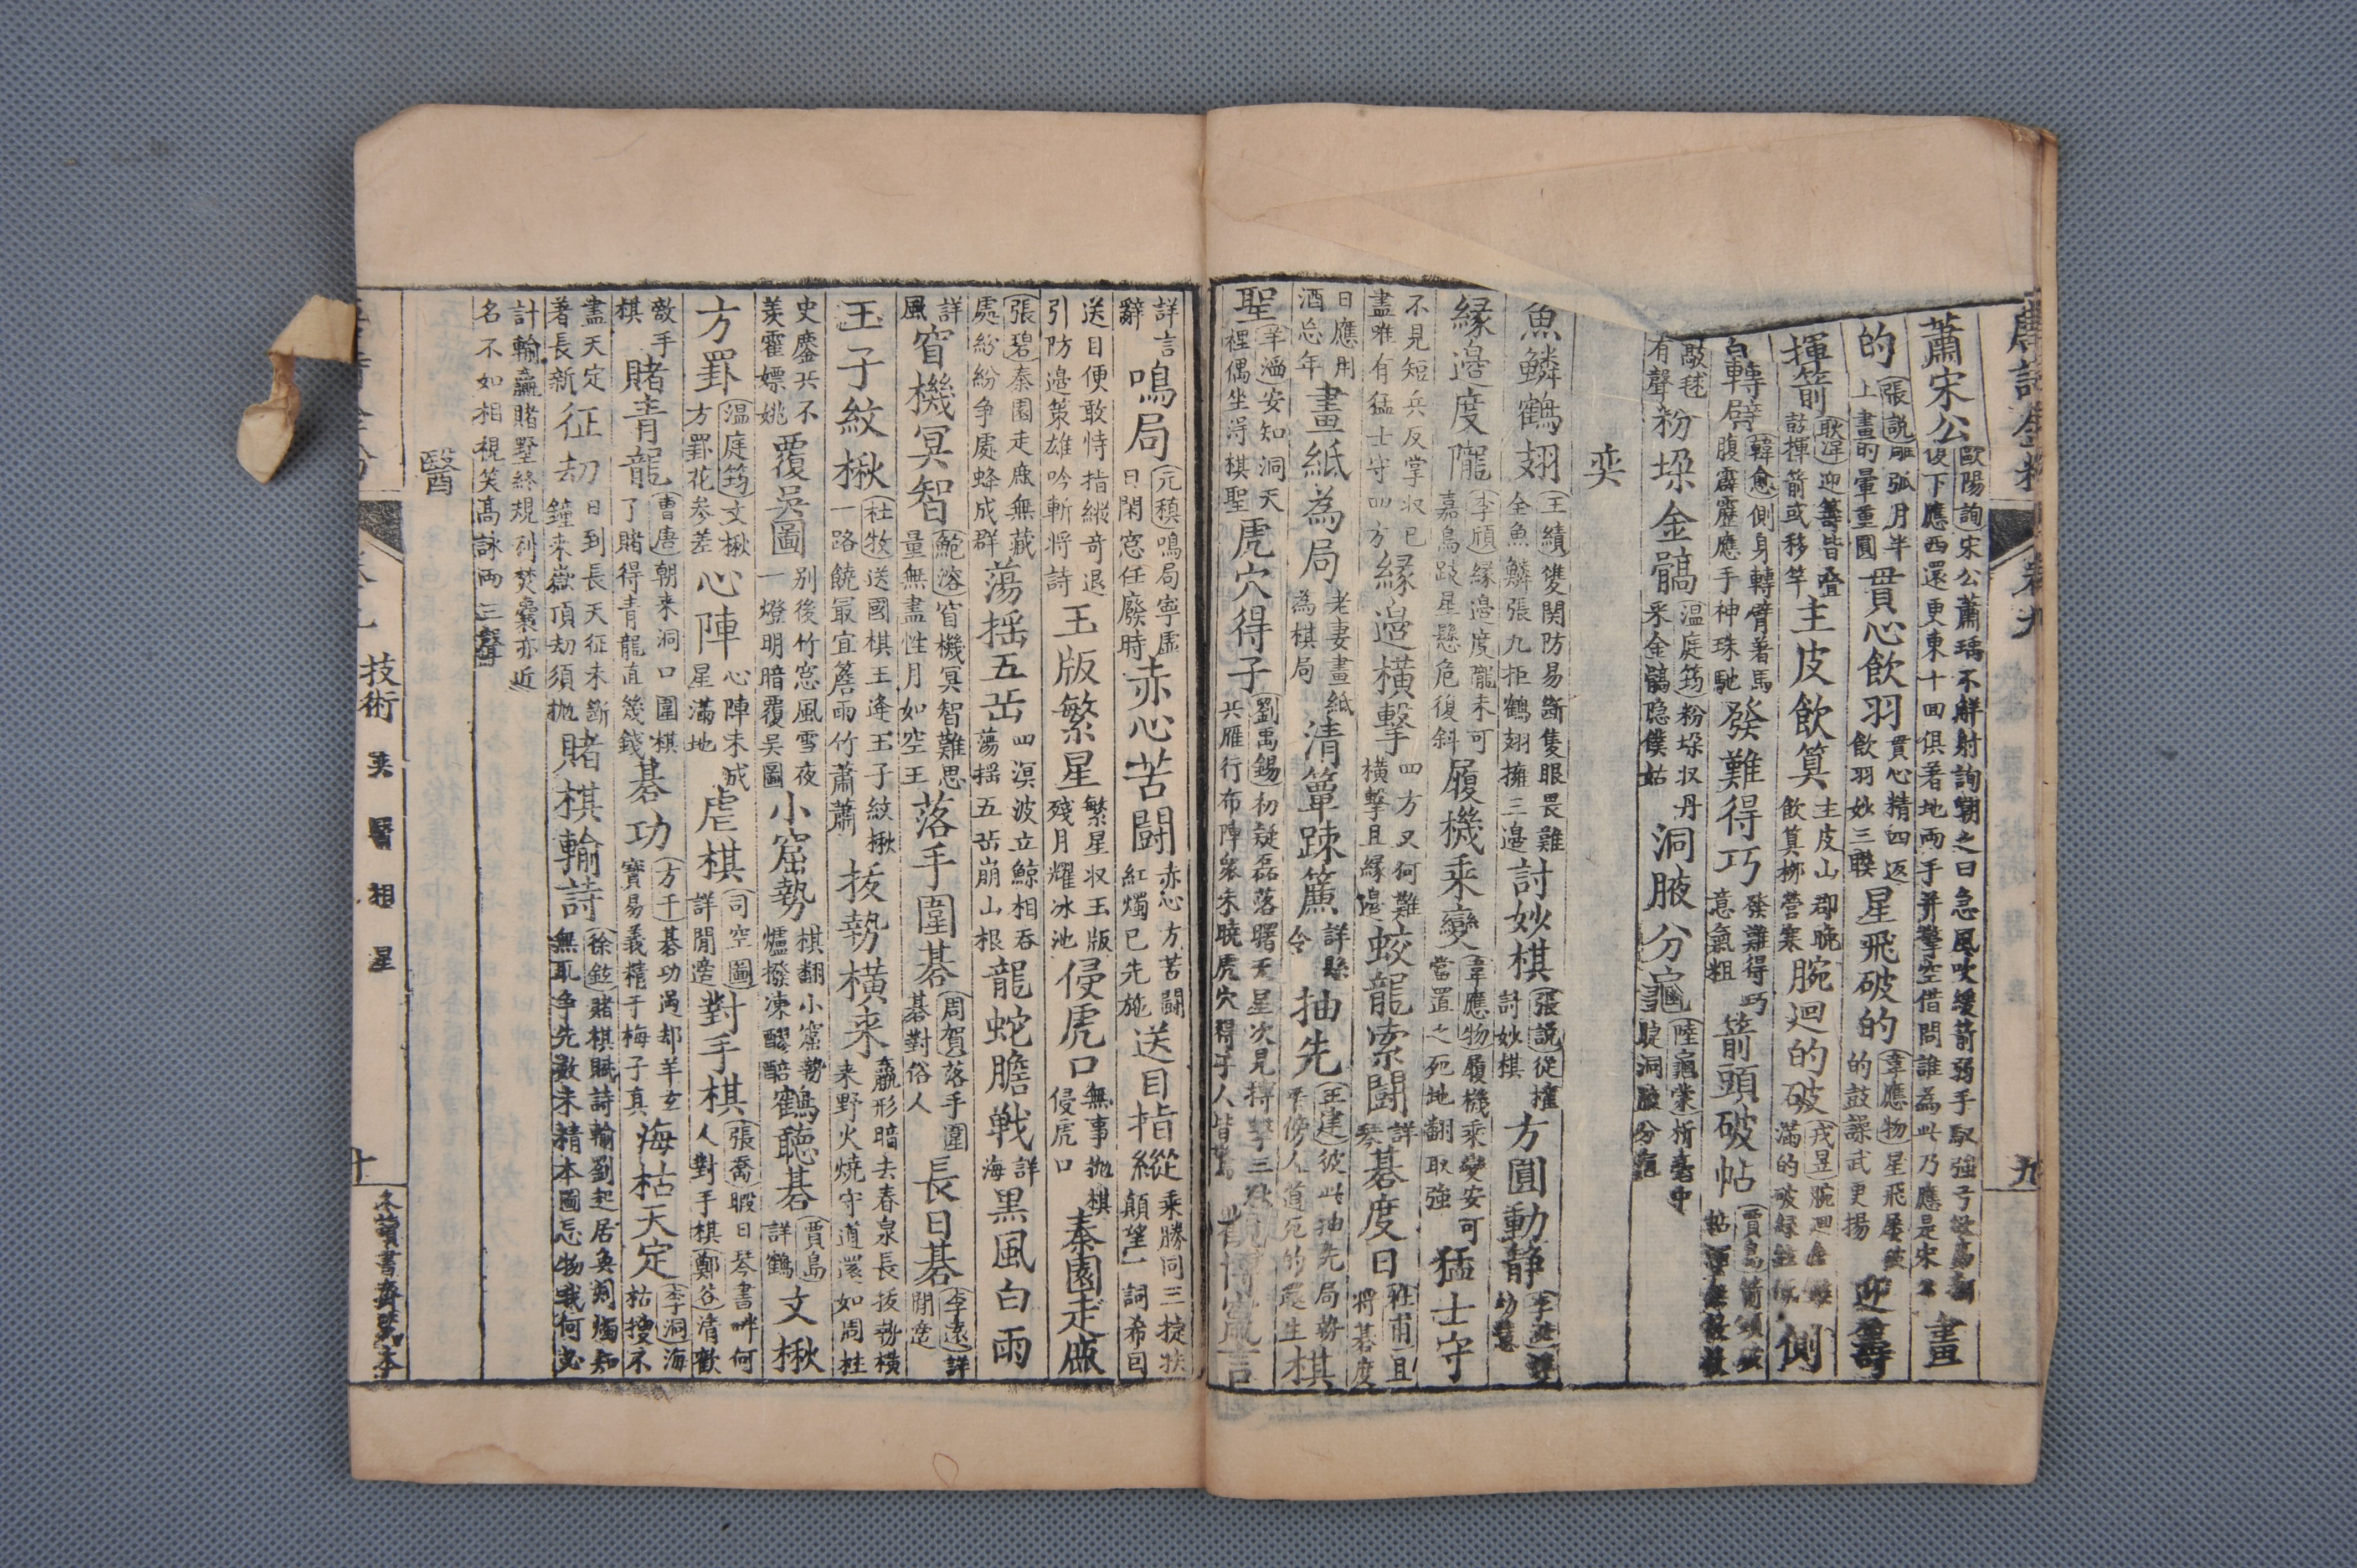 唐詩金粉 卷九 九
蕭宋公歐陽詢宋公蕭瑀不解射詢嘲之曰急風吹緩箭弱手馭強弓欲高翻復下應西還更東十回俱著地兩手并擎空借問誰為此乃應是宋公畫
的張說雕弧月半上畫的暈重圓貫心飲羽貫心精四返飲羽妙三聯星飛破的韋應物星飛屢破的鼓譟武更揚迎籌
揮箭耿湋迎籌皆疊鼓揮箭或移竿主皮飲算主皮山郡晚飲算柳營寒腕迴的破戎昱腕迴金鏃滿的破綠弦側
身轉臂韓愈側身轉臂著馬腹霹靂應手神珠馳發難得巧發難得巧意氣粗箭頭破帖賈島箭頭破帖渾無敵杖
敲毬有聲粉垛金鏑温庭筠粉垛収丹采金鏑隐僕姑洞腋分龜陸龜蒙析毫中睫洞腋分龜
奕
魚鱗鶴翅王績雙関防易斷隻眼畏難全魚鱗張九拒鶴翅擁三邊討妙棋張說從擢討妙棋方圓動静李泌詳幼慧
緣邊度隴李頎緣邊度隴未可嘉鳥跂星懸危復斜履機乘變韋應物履機乘變安可當置之死地翻取強猛士守
不見短兵反掌収已盡唯有猛士守四方緣邊橫擊四方又何難橫擊且緣邊蛟龍索鬬詳琴碁度日杜甫且將碁度
日應用酒忘年畫紙為局老妻畫紙為棋局清簟疎簾詳縣令抽先王建彼此抽先局勢平傍人道死的還生棋
聖羊滔安知洞天裡偶坐淂棋聖虎穴得子劉禹錫初疑磊落曙天星次見搏擊三秋兵雁行布陣衆未曉虎穴得子人皆驚鸛博寓言
詳言辭鳴局元稹鳴局寧虛日閑窓任廢時赤心苦鬬赤心方苦鬬紅燭已先施送目指縱乘勝同三捷扶顛望一詞希囙
送目便敢恃指縱奇退引防邊策雄吟斬将詩玉版繁星繁星収玉版殘月耀冰池侵虎口無事抛棋侵虎口秦園走鹿
張碧秦園走鹿無藏處紛紛争處蜂成群蕩揺五岳四溟波立鯨相吞蕩揺五岳崩山根龍蛇膽戰詳海黒風白雨
詳風窅機冥智鮑溶窅機冥智難思量無盡性月如空王落手圍碁周賀落手圍碁對俗人長日碁李遠詳閒㢠
玉子紋楸杜牧送國棋王逄玉子紋楸一路饒冣宜簷雨竹蕭蕭拔勢橫来羸形暗去春泉長拔勢橫来野火燒守道還如周柱
史鏖兵不羨霍嫖姚覆吳圖别後竹窓風雪夜一燈明暗覆吳圖小窟勢棋翻小窟勢爐撥凍醪醅鶴聴碁賈島詳鶴文楸
方罫温庭筠文楸方罫花參差心陣心陣未成星滿地虐棋司空圖詳閒㢠對手棋張喬暇日琴書畔何人對手棋鄭谷清歡
敵手棋賭青龍曹唐朝来洞口圍棋了賭得青龍直㡬錢碁功方干碁功過却羊玄寶易義精于梅子真海枯天定李洞海枯搜不
盡天定著長新征刧日到長天征未斷鐘来嶽頂刧須抛賭棋輸詩徐鉉賭棋賦詩輸劉起居奐刻燭知無取争先敵未精本圖忘物我何必
計輸贏賭墅終規利焚囊亦近名不如相視笑高詠兩三聲
醫
技術 奕 醫 相 星 十 冬讀書齋藏本